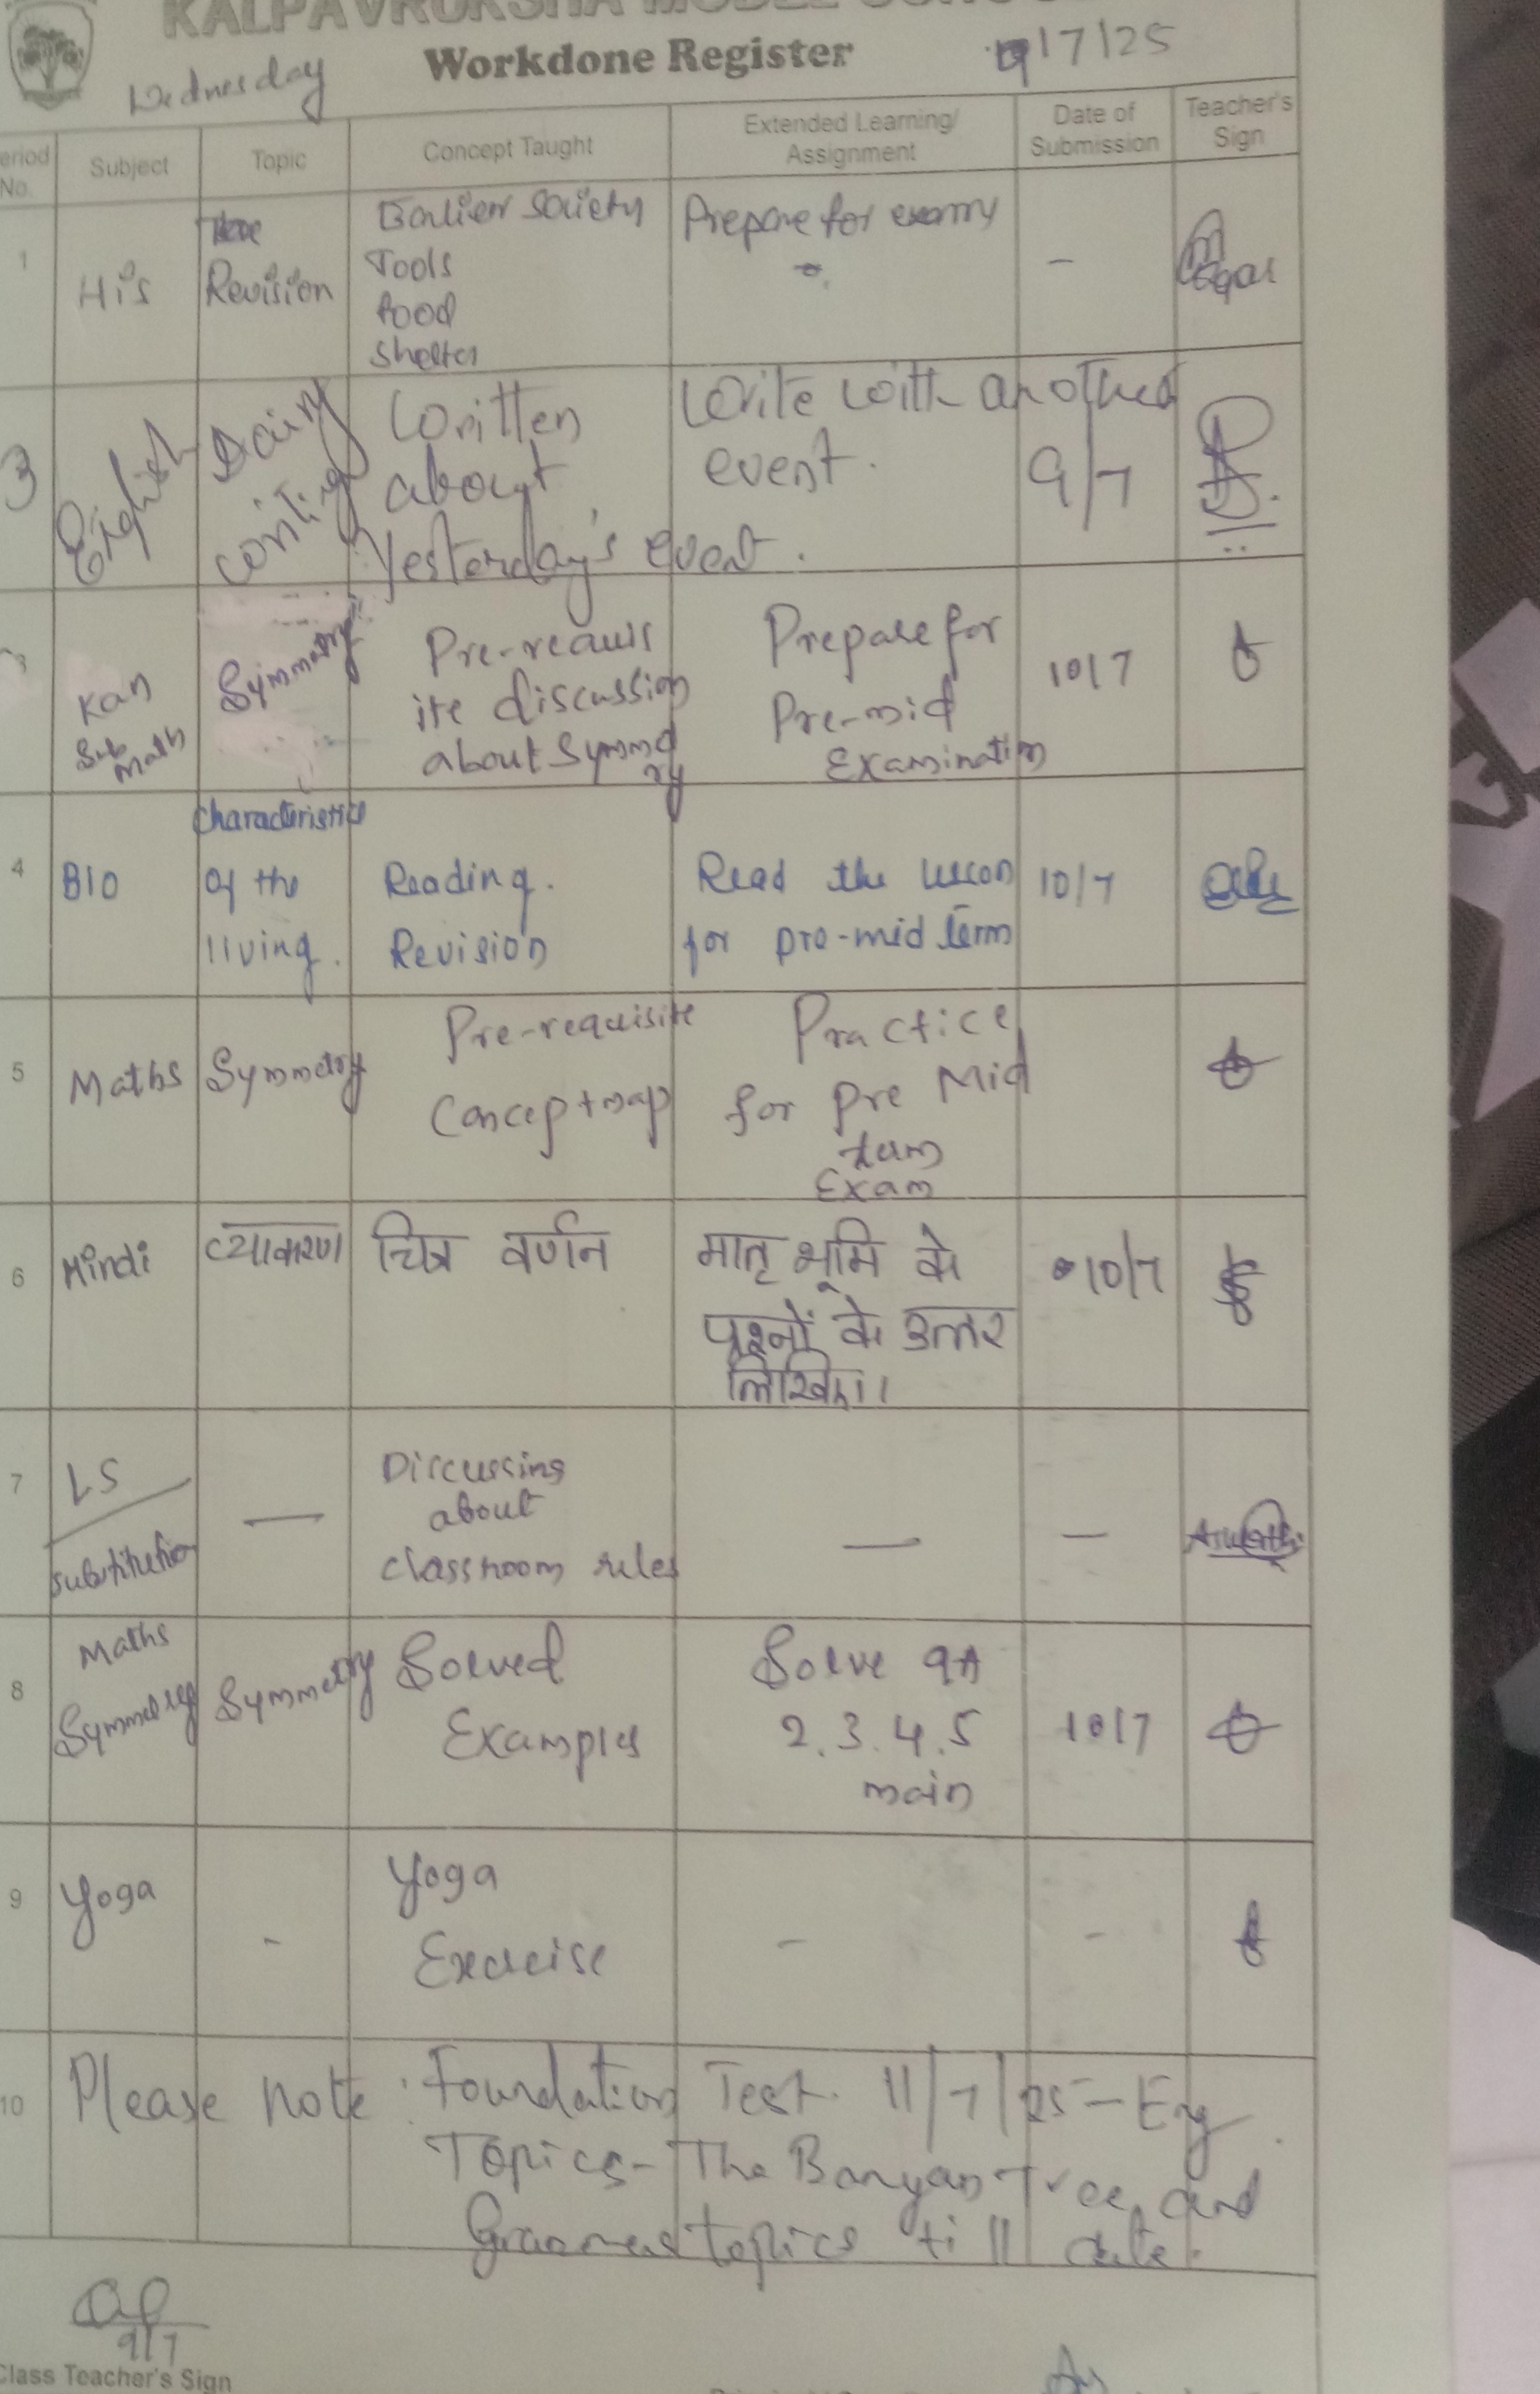 Workdone Register
Wednesday
9/7/25
Subject
Topic
Concept Taught
Extended Learning/
Assignment
Date of
Submission
Teacher's
Sign
No.
1
His
Revision
Earlier Society
Tools
food
Shelter
Prepare for exams
-
3
English
Dairy
writing
Written
about
Yesterday's event.
Write with another
event.
9/7
Kan
Sub
Math
Symmetry
Pre-requis
ite discussion
about Symmet
ry
Prepare for
Pre-mid
Examination
10/7
4
BIO
Characteristics
of the
living.
Reading.
Revision
Read the lesson
for pre-mid term
10/7
5
Maths
Symmetry
Pre-requisite
Concept map
Practice
for Pre Mid
term
Exam
6
Hindi
व्याकरण
चित्र वर्णन
मातृ भूमि के
प्रश्नों के उत्तर
लिखिए।
10/7
7
LS
Substitution
—
Discussing
about
classroom rules
—
—
Aswathi
8
Maths
Symmetry
Symmetry
Solved
Examples
Solve 9A
2.3.4.5
main
10/7
9
Yoga
-
Yoga
Exercise
-
-
10
Please note: Foundation Test. 11/7/25 - Eng.
Topics- The Banyan Tree, and
Grammar topics till date.
9/7
Class Teacher's Sign